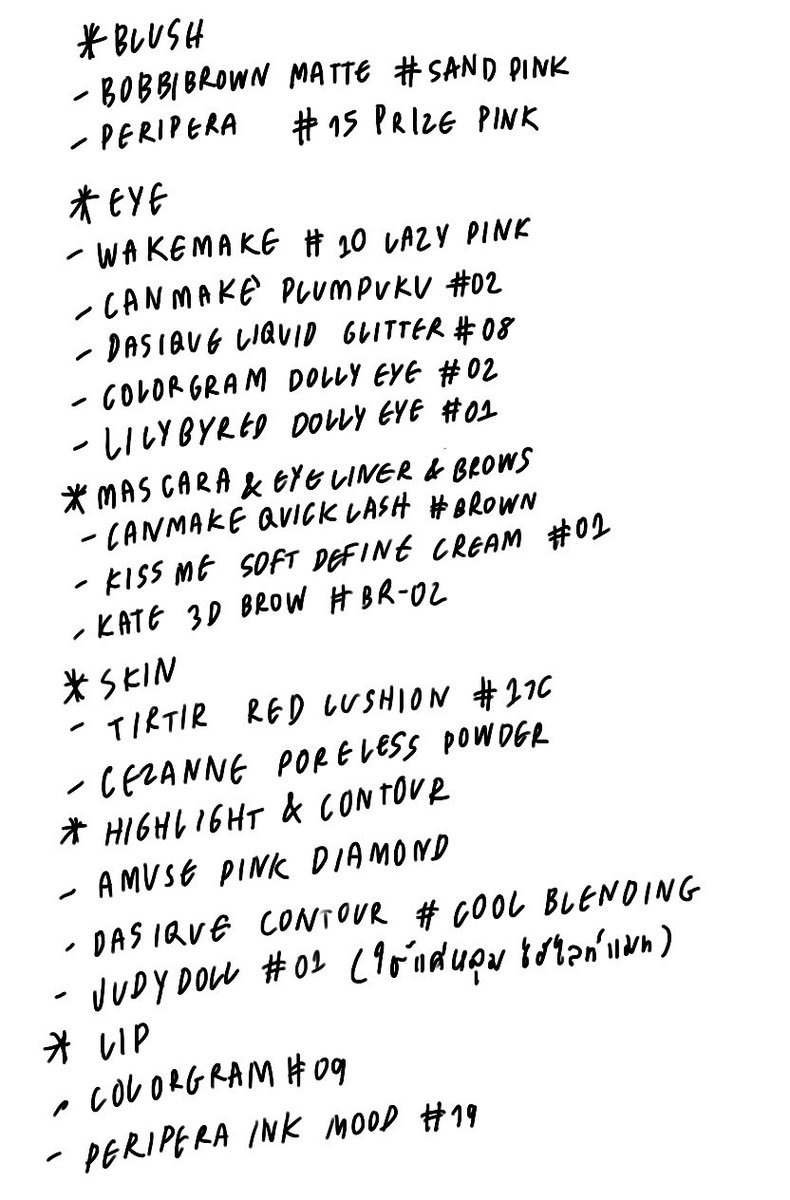 * BLUSH
- BOBBIBROWN MATTE #SAND PINK
- PERIPERA #15 PRIZE PINK
* EYE
- WAKEMAKE #10 LAZY PINK
- CANMAKE PLUMPUKU #02
- DASIQUE LIQUID GLITTER #08
- COLORGRAM DOLLY EYE #02
- LILYBYRED DOLLY EYE #01
* MASCARA & EYELINER & BROWS
- CANMAKE QUICK LASH #BROWN
- KISS ME SOFT DEFINE CREAM #01
- KATE 3D BROW #BR-02
* SKIN
- TIRTIR RED CUSHION #17C
- CEZANNE PORELESS POWDER
* HIGHLIGHT & CONTOUR
- AMUSE PINK DIAMOND
- DASIQUE CONTOUR # COOL BLENDING
- JUDYDOLL #01 (ใช้แค่หลุม ไฮไลท์แมท)
* LIP
- COLORGRAM #09
- PERIPERA INK MOOD #19